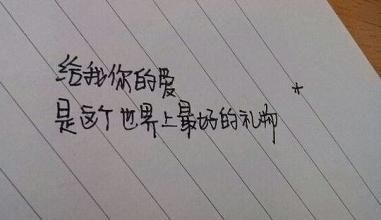 给我你的爱
是这个世界上最好的礼物